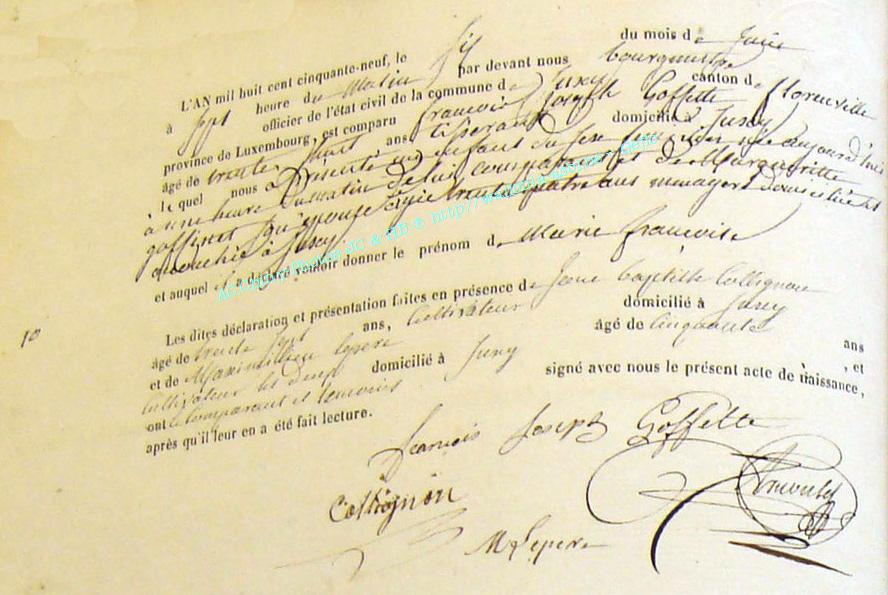 L'AN mil huit cent cinquante-neuf, le six du mois de
à sept heure du matin par devant nous bourgmestre
officier de l'état civil de la commune de Jusey canton de florenville
province de Luxembourg, est comparu francois Joseph Goffette
âgé de trente huit ans tisserand domicilié à Jusey
, le quel nous a Presenté un enfant du sexe née aujourd'hui
à une heure du matin de lui comparant et de Marguerite
goffinet son epouse agée trente quatre ans menagere domiciliée et
accouchée à Jusey
et auquel il a déclaré vouloir donner le prénom de Marie françoise
Les dites déclaration et présentation faites en présence de Jean baptiste Collignon
âgé de trente sept ans, cultivateur domicilié à Jusey
et de Maximilien Lepere âgé de cinquante ans
cultivateur domicilié à Jusey , et
ont le comparant et temoins signé avec nous le présent acte de naissance,
après qu'il leur en a été fait lecture.
10
francois Joseph Goffette
Collignon
M Lepere